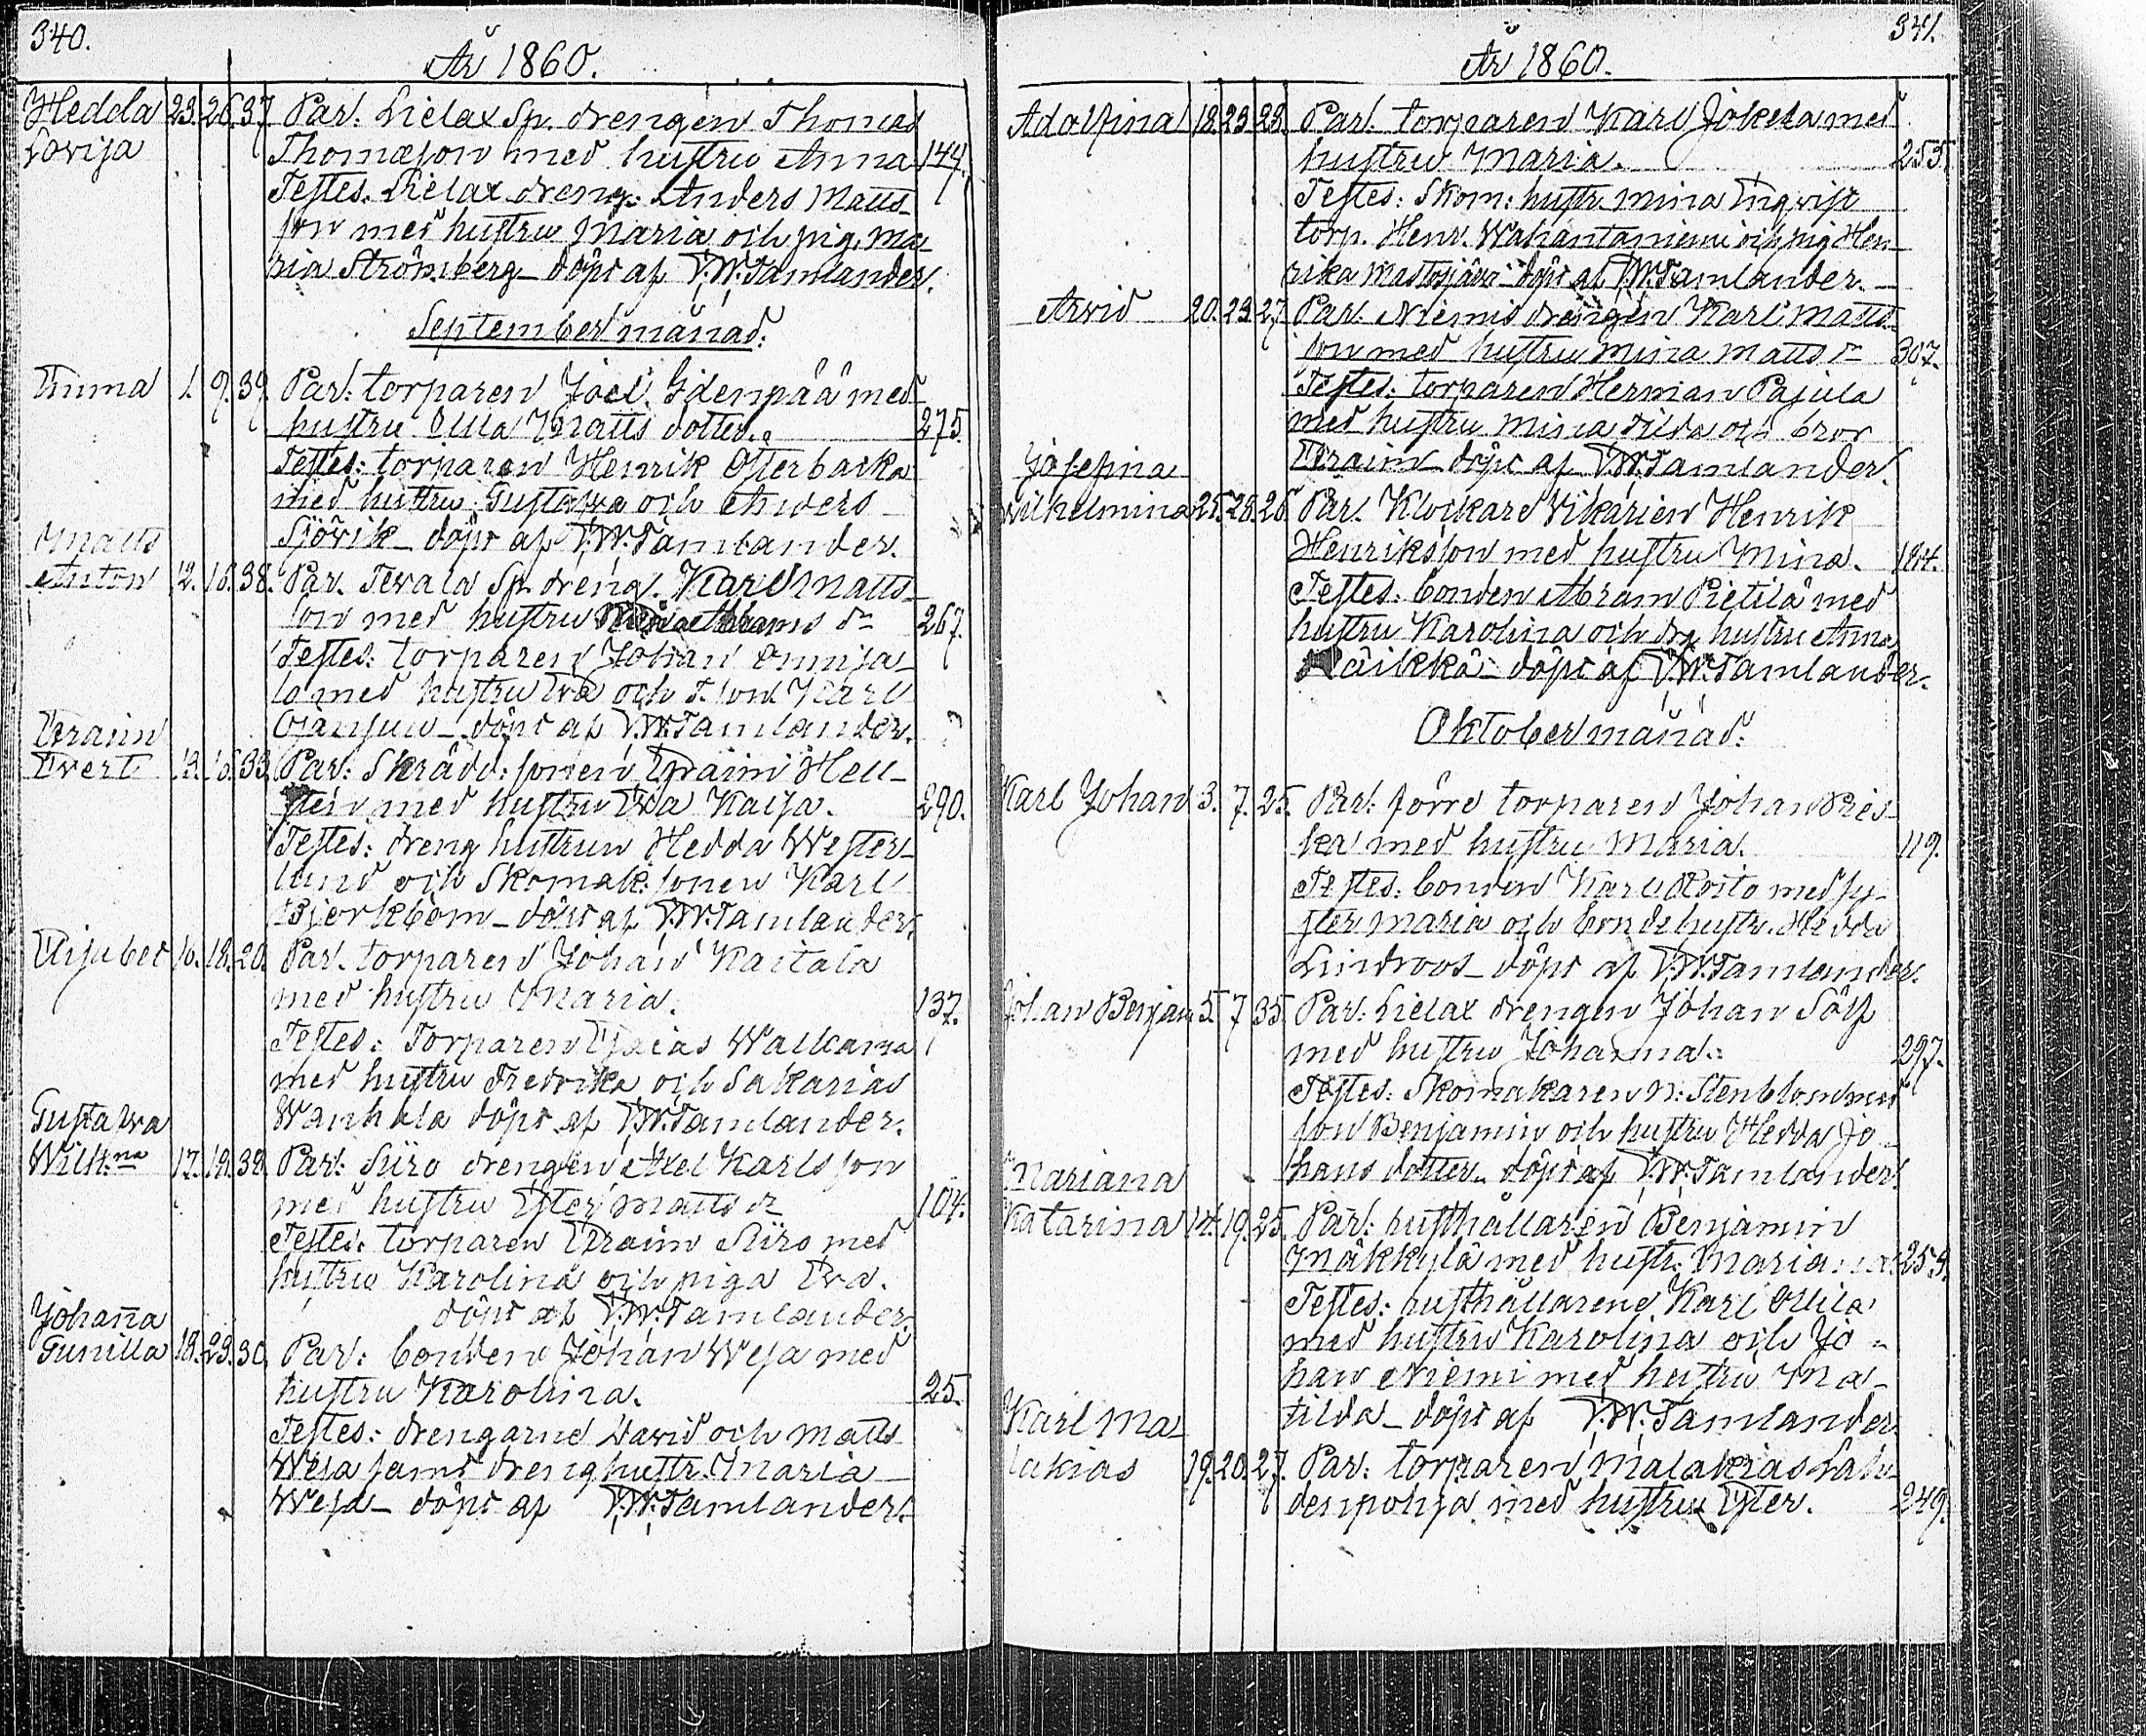 340.
År 1860.
Hedda 23. 26. 37 Par. Lielax Sp. drengen Thomas
Lovisa Thomæson med hustru Anna 144.
Testes. Lielax dreng. Anders Matts-
son med hustru Maria och pig. Ma-
ria Strömberg döpt af F.W. Tamlander.
September månad:
Emma 1. 9. 39. Par: torparen Joel Idenpää med
hustru Ulla Matts dotter. 275.
Testes: torparen Henrik Otterbacka
med hustru Gustafva och Anders
Sjövik döpt af F.W. Tamlander.
Matts
Anton 12. 16. 38. Par. Tevala Sp. dreng. Karl Matts-
son med hustru Abrams dr 267.
Testes: torparen Johan Onnija-
la med hustru Eva och T. son Karl
döpt af F.W. Tamlander.
Efraim
Evert 12. 16. 33. Par: Skrädd: sonen Efraim Hell-
sten med hustru Eva Kaisa. 290.
Testes: dreng hustrun Hedda Wester-
lund och Skomak: sonen Karl
Björkbom döpt af F.W. Tamlander.
Elisabet 16. 18. 20. Par. torparen Johan Kaitala
med hustru Maria. 137.
Testes: Torparen Esaias Walkama
med hustru Fredrika och Sakarias
Wanhala döpt af F.W. Tamlander.
Gustafva
Wilh:na 17. 19. 32. Par: Siiro drengen Axel Karlsson
med hustru Ester Matts dr 104.
Testes: torparen Efraim Siiro med
hustru Karolina och piga Eva.
döpt af F.W. Tamlander.
Johana
Gunilla 19. 23. 30. Par: bonden Johan Wesa med
hustru Karolina. 25.
Testes: drengarne David och Matts
Wesa samt dreng hustr. Maria
Wesa döpt af F.W. Tamlander.
341.
År 1860.
Adolfina 18. 23. 28. Par. torparen Karl Jokela med
hustru Maria. 253.
Testes: Skom: hustr. Mina Engvist
torp. Henr. Wahantaniemi och pig Hen-
rika Mastosjärvi döpt af F.W. Tamlander.
Arvid 20. 23. 27. Par. Niemis drengen Karl Matts-
son med hustru Mina Matts dr 307.
Testes: torparen Herman Pajula
med hustru Mina Tilda och bror
Efraim döpt af F.W. Tamlander.
Josefina
Wilhelmina 25. 28. 26. Par. Klockare Vikarien Henrik
Henriksson med hustru Mina. 184.
Testes. bonden Abram Pietilä med
hustru Karolina och drg hustru Anna
döpt af F.W. Tamlander.
Oktober månad:
Karl Johan 3. 7. 25. Par: förre torparen Johan Pris-
ka med hustru Maria. 119.
Testes: bonden Karl med sy-
ster Maria och bonde hustr. Hedda
Lindroos döpt af F.W. Tamlander.
Johan Benjam 5. 7. 35. Par: Lielax drengen Johan Sölf
med hustru Johanna: 297.
Testes: Skomakaren N: Stenblom med
son Benjamin och hustru Hedda Jo-
hans dotter döpt af F.W. Tamlander.
Mariana
Katarina 14. 19. 25. Par: husthållaren Benjamin
Mäkkylä med hustr. Maria: 259.
Testes: husthållarene Karl Ollila
med hustru Karolina och Jo-
han Niemi med hustru Ma-
tilda döpt af F.W. Tamlander.
Karl Ma
lakias 19. 20. 27. Par: torparen Malakias Lah-
denpohja med hustru Ester. 249.